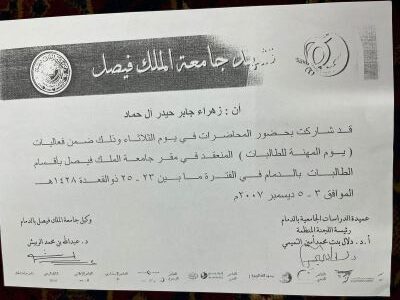 تشهد جامعة الملك فيصل
أن : زهراء جابر حيدر آل حماد
قد شاركت بحضور المحاضرات في يوم الثلاثاء وذلك ضمن فعاليات
( يوم المهنة للطالبات ) المنعقد في مقر جامعة الملك فيصل بأقسام
الطالبات بالدمام في الفترة ما بين ٢٣ - ٢٥ ذو القعدة ١٤٢٨هـ
الموافق ٣ - ٥ ديسمبر ٢٠٠٧م
عميدة الدراسات الجامعية بالدمام
رئيسة اللجنة المنظمة
أ . د . دلال بنت محمد أمين التميمي
وكيل جامعة الملك فيصل بالدمام
د. عبدالله بن محمد الربيش